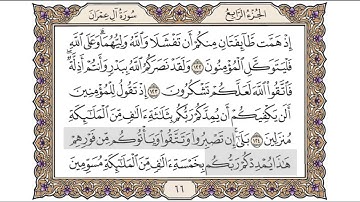 الجزء الرابع
سورة آل عمران
إِذْ هَمَّت طَّآئِفَتَانِ مِنكُمْ أَن تَفْشَلَا وَٱللَّهُ وَلِيُّهُمَا ۗ وَعَلَى ٱللَّهِ
فَلْيَتَوَكَّلِ ٱلْمُؤْمِنُونَ ١٢٢ وَلَقَدْ نَصَرَكُمُ ٱللَّهُ بِبَدْرٍ وَأَنتُمْ أَذِلَّةٌ ۖ
فَٱتَّقُوا۟ ٱللَّهَ لَعَلَّكُمْ تَشْكُرُونَ ١٢٣ إِذْ تَقُولُ لِلْمُؤْمِنِينَ
أَلَن يَكْفِيَكُمْ أَن يُمِدَّكُمْ رَبُّكُم بِثَلَٰثَةِ ءَالَٰفٍ مِّنَ ٱلْمَلَٰٓئِكَةِ
مُنزَلِينَ ١٢٤ بَلَىٰٓ ۚ إِن تَصْبِرُوا۟ وَتَتَّقُوا۟ وَيَأْتُوكُم مِّن فَوْرِهِمْ
هَٰذَا يُمْدِدْكُمْ رَبُّكُم بِخَمْسَةِ ءَالَٰفٍ مِّنَ ٱلْمَلَٰٓئِكَةِ مُسَوِّمِينَ
٦٦